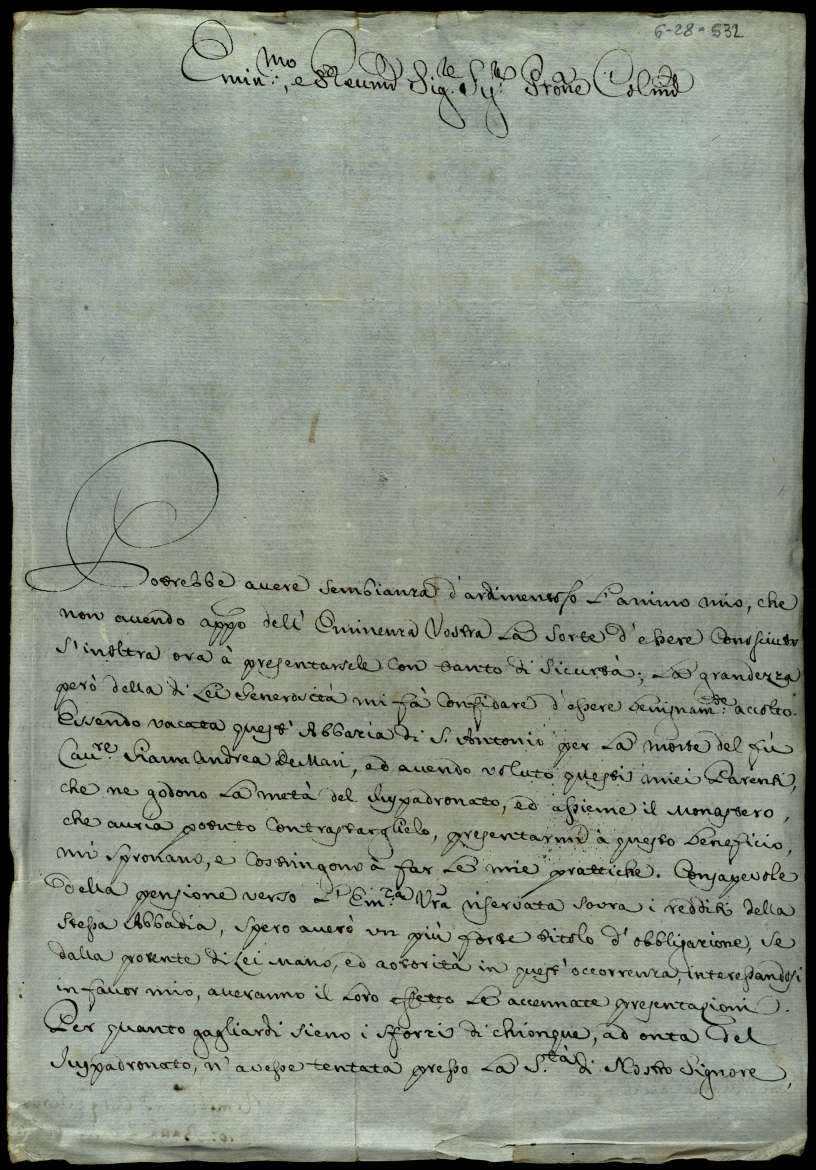 6-28-532
Emin.mo, e Reverend Sig.re Sig.r Prone Colmd
Potrebbe avere sembianza d'ardimentoso L'animo mio, che
non avendo appo dell' Eminenza Vostra La sorte d'essere conosciuto
s'inoltra ora à presentarsele con tanto di sicurtà; La grandezza
però della di Lei Generosità mi fà confidare d'essere benignam.te accolto.
Essendo vacata quest' Abbazia di S. Antonio per La morte del fù
Cav.re Giann Andrea DeMari, ed avendo voluto questi miei Parenti,
che ne godono La metà del Juspadronato, ed assieme il Monastero,
che auria potuto contrastarglielo, presentarmi à questo beneficio,
mi spronano, e costringono à far Le mie prattiche. Consapevole
della pensione verso L'Em.za Vra riservata sovra i redditi della
stessa Abbadia, spero averò un più forte titolo d'obbligazione, se
dalla potente di Lei mano, ed autorità in quest'occorrenza, interessandosi
in favor mio, averanno il Loro effetto Le accennate presentazioni.
Per quanto gagliardi sieno i sforzi di chionque, ad onta del
Juspadronato, n'avesse tentata presso La S.tà di Nostro Signore,